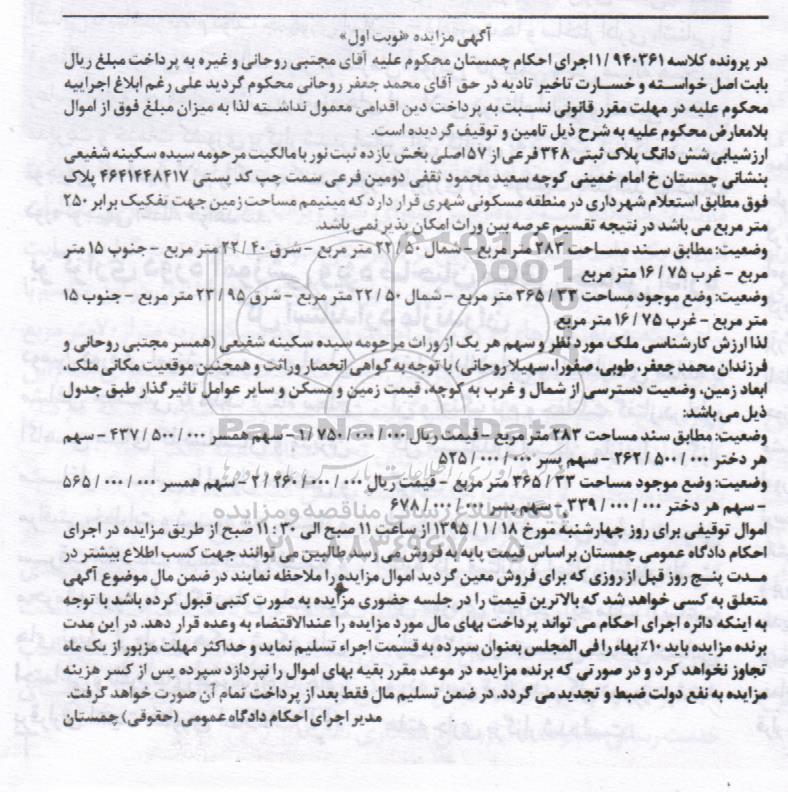 آگهی مزایده «نوبت اول»
در پرونده کلاسه ۹۴۰۳۶۱ / ۱ اجرای احکام چمستان محکوم علیه آقای مجتبی روحانی و غیره به پرداخت مبلغ ریال
بابت اصل خواسته و خسارت تاخیر تادیه در حق آقای محمد جعفر روحانی محکوم گردید علی رغم ابلاغ اجراییه
محکوم علیه در مهلت مقرر قانونی نسبت به پرداخت دین اقدامی معمول نداشته لذا به میزان مبلغ فوق از اموال
بلامعارض محکوم علیه به شرح ذیل تامین و توقیف گردیده است.
ارزشیابی شش دانگ پلاک ثبتی ۳۴۸ فرعی از ۵۷ اصلی بخش یازده ثبت نور با مالکیت مرحومه سیده سکینه شفیعی
بنشانی چمستان خ امام خمینی کوچه سید محمود ثقفی دومین فرعی سمت چپ کد پستی ۴۶۴۱۴۴۸۴۱۷ پلاک
فوق مطابق استعلام شهرداری در منطقه مسکونی شهری قرار دارد که مینیمم مساحت زمین جهت تفکیک برابر ۲۵۰
متر مربع می باشد در نتیجه تقسیم عرصه بین وراث امکان پذیر نمی باشد.
وضعیت: مطابق سند مساحت ۲۸۳ متر مربع - شمال ۵۰ / ۲۲ متر مربع - شرق ۴۰ / ۲۲ متر مربع - جنوب ۱۵ متر
مربع - غرب ۷۵ / ۱۶ متر مربع
وضعیت: وضع موجود مساحت ۳۳ / ۳۶۵ متر مربع - شمال ۵۰ / ۲۲ متر مربع - شرق ۹۵ / ۲۳ متر مربع - جنوب ۱۵
متر مربع - غرب ۷۵ / ۱۶ متر مربع
لذا ارزش کارشناسی ملک مورد نظر و سهم هر یک از وراث مرحومه سیده سکینه شفیعی (همسر مجتبی روحانی و
فرزندان محمد جعفر، طوبی، صغورا، سهیلا روحانی) با توجه به گواهی انحصار وراثت و همچنین موقعیت مکانی ملک،
ابعاد زمین، وضعیت دسترسی از شمال و غرب به کوچه، قیمت زمین و مسکن و سایر عوامل تاثیر گذار طبق جدول
ذیل می باشد:
وضعیت: مطابق سند مساحت ۲۸۳ متر مربع - قیمت ریال ۰۰۰ / ۰۰۰ / ۷۵۰ / ۱ - سهم همسر ۰۰۰ / ۵۰۰ / ۴۳۷ - سهم
هر دختر ۰۰۰ / ۵۰۰ / ۲۶۲ - سهم پسر ۰۰۰ / ۰۰۰ / ۵۲۵
وضعیت: وضع موجود مساحت ۳۳ / ۳۶۵ متر مربع - قیمت ریال ۰۰۰ / ۰۰۰ / ۲۶۰ / ۲ - سهم همسر ۰۰۰ / ۰۰۰ / ۵۶۵
- سهم هر دختر ۰۰۰ / ۰۰۰ / ۳۳۹ - سهم پسر ۰۰۰ / ۰۰۰ / ۶۷۸
اموال توقیفی برای روز چهارشنبه مورخ ۱۸ / ۱ / ۱۳۹۵ از ساعت ۱۱ صبح الی ۳۰ : ۱۱ صبح از طریق مزایده در اجرای
احکام دادگاه عمومی چمستان بر اساس قیمت پایه به فروش می رسد طالبین می توانند جهت کسب اطلاع بیشتر در
مدت پنج روز قبل از روزی که برای فروش معین گردید اموال مزایده را ملاحظه نمایند در ضمن مال موضوع آگهی
متعلق به کسی خواهد شد که بالاترین قیمت را در جلسه حضوری مزایده به صورت کتبی قبول کرده باشد با توجه
به اینکه دائره اجرای احکام می تواند پرداخت بهای مال مورد مزایده را عندالاقتضاء به وعده قرار دهد. در این مدت
برنده مزایده باید ۱۰٪ بهاء را فی المجلس بعنوان سپرده به قسمت اجراء تسلیم نماید و حداکثر مهلت مزبور از یک ماه
تجاوز نخواهد کرد و در صورتی که برنده مزایده در موعد مقرر بقیه بهای اموال را نپردازد سپرده پس از کسر هزینه
مزایده به نفع دولت ضبط و تجدید می گردد. در ضمن تسلیم مال فقط بعد از پرداخت تمام آن صورت خواهد گرفت.
مدیر اجرای احکام دادگاه عمومی (حقوقی) چمستان
ParsNamadData